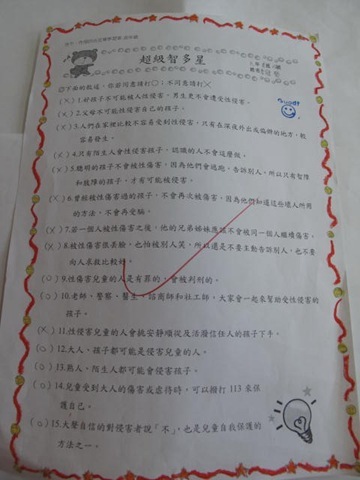 超級智多星
◎下面的敘述,你若同意請打○;不同意請打╳
(╳) 1.好孩子不可能被人性侵害,男生更不會遭受性侵害。
(╳) 2.父母不可能性侵害自己的孩子。
(╳) 3.人們在家裡比較不容易受到性侵害,只有在深夜外出或偏僻的地方,較
容易發生。
(╳) 4.只有陌生人會性侵害孩子,認識的人不會這麼做。
(╳) 5.聰明的孩子不會被性傷害,因為他們會逃跑、告訴別人,所以只有智障
和肢障的孩子,才有可能被侵害。
(╳) 6.曾經被性傷害過的孩子,不會再次被傷害,因為他們知道這些壞人所用
的方法,不會再受騙。
(╳) 7.若一個人被性傷害之後,他的兄弟姊妹應該不會被同一個人繼續傷害。
(╳) 8.被性傷害很丟臉,也怕被別人笑,所以還是不要主動告訴別人,也不要
向人求救比較好。
(○) 9.性傷害兒童的人是有罪的,會被判刑的。
(○) 10.老師、警察、醫生、諮商師和社工師,大家會一起來幫助受性侵害的
孩子。
(╳) 11.性侵害兒童的人會挑安靜順從及活潑信任人的孩子下手。
(○) 12.大人、孩子都可能是侵害兒童的人。
(○) 13.熟人、陌生人都可能會侵害孩子。
(○) 14.兒童受到大人的傷害或虐待時,可以撥打 113 來保
護自己。
(○) 15.大聲自信的對侵害者說「不」,也是兒童自我保護的
方法之一。